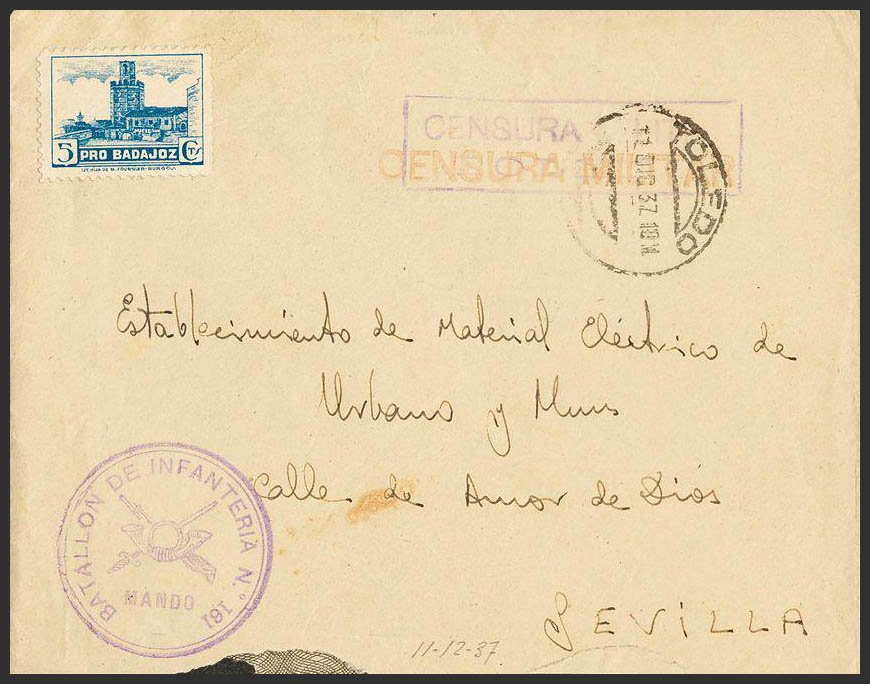 5 PRO BADAJOZ Cts
CENSURA
CENSURA MILITAR
TOLEDO
11 DIC 37 18 M
Establecimiento de Material Eléctrico de
Urbano y
Calle de Amor de Dios
SEVILLA
BATALLON DE INFANTERIA N.º 161
MANDO
11-12-37